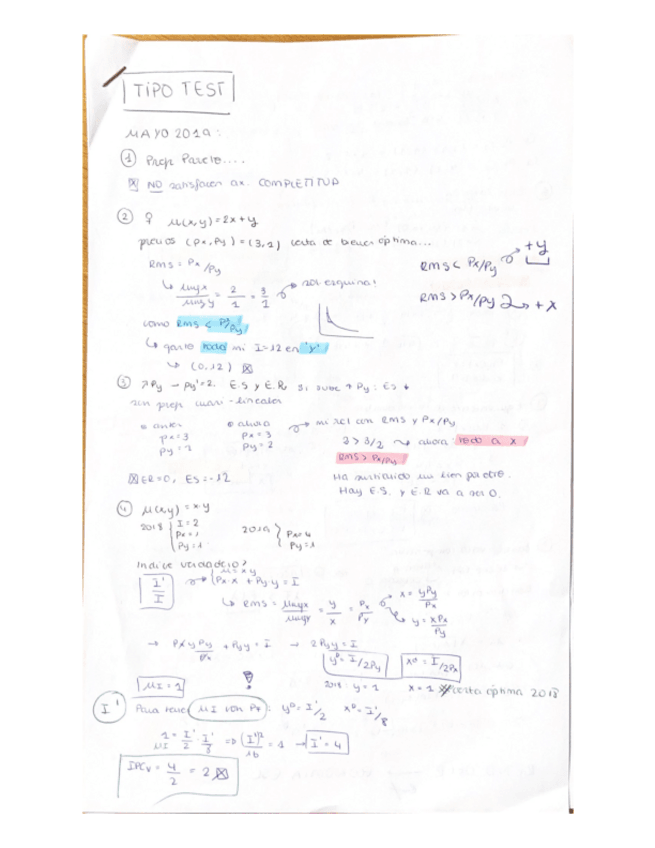 TIPO TEST
MAYO 2019:
① Pref Pareto....
☒ NO satisfacen ax. COMPLETITUD
② u(x,y)=2x+y
precios (Px,Py)=(3,1) cesta de bienes óptima...
RMS = Px/Py
RMS < Px/Py → +y
Mugx/Mugy = 2/1 = 3/1 → sol esquina!
RMS > Px/Py → +x
como RMS < Px/Py
↳ gasto todo mi I=12 en 'y'
↳ (0,12) ☒
③ ↗Py → Py'=2. E.S y E.R si sube ↑ Py: Es ↓
son pref cuasi-lineales
• antes • ahora → mi rel con RMS y Px/Py
Px=3 Px=3
Py=1 Py=2
2 > 3/2 → ahora: todo a x
RMS > Px/Py
☒ ER=0, ES=-12
Ha sustituido un bien por otro.
Hay E.S. y E.R va a ser 0.
④ u(x,y) = x·y
2018 { I=2 Px=1 Py=1
2019 { Px=4 Py=1
Indice verdadero?
u=x·y
I'/I → Px·x + Py·y = I
↳ RMS = Mugx/Mugy = y/x = Px/Py
x = yPy/Px
y = xPx/Py
→ Px yPy/Px + Pyy = I → 2Pyy = I
y⁰ = I/2Py x⁰ = I/2Px
2018: y=1 x=1 cesta óptima 2018
MI=1
I' Para tener MI con P4: y⁰=I'/2 x⁰=I'/8
1 = I'/2 · I'/8 => (I')²/16 = 1 → I'=4
MI
IPCv = 4/2 = 2 ☒